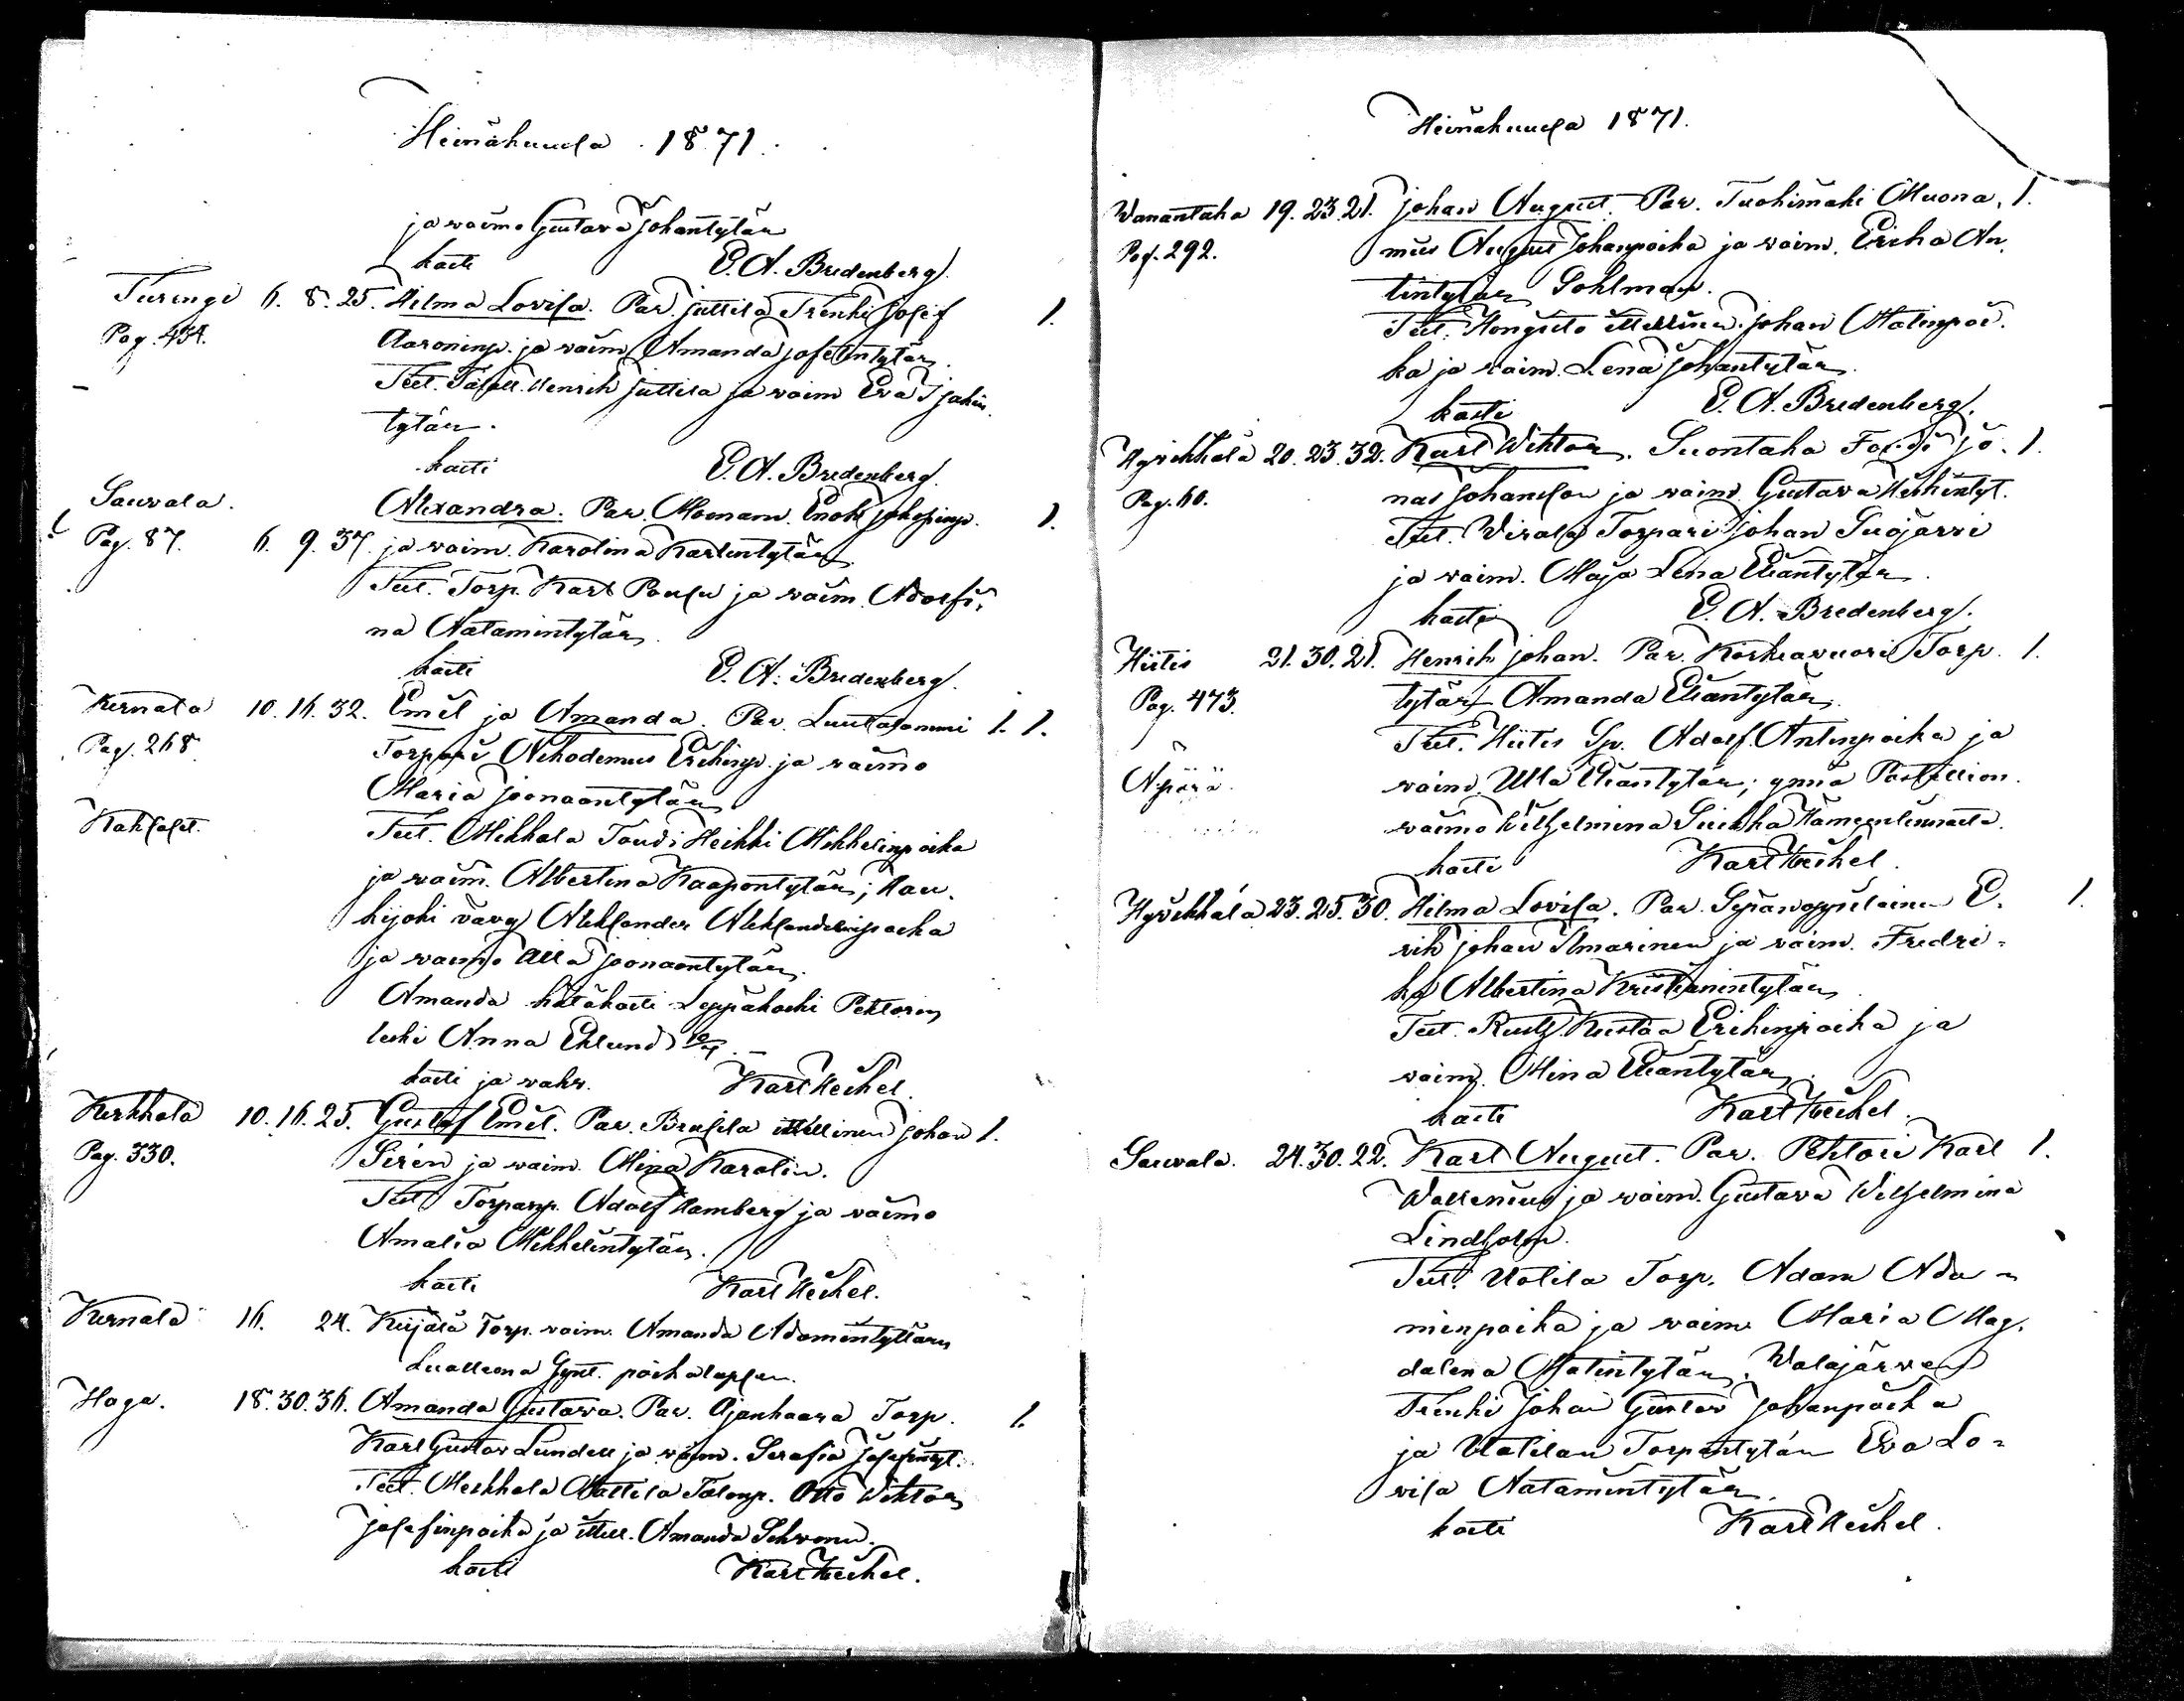 Heinäkuusa 1871.
ja waimo Gustava Johantytär
kasti E. A. Bredenberg.
Turengi 6. 8. 25. Hilma Lovisa. Par. Juttila Trenki Josef 1.
Pag. 434. Aaroninp. ja waim. Amanda Josefintytär.
Test. Henrik Juttila ja waim Eva
tytär.
kasti E. A. Bredenberg.
Sauvala. Alexandra. Par. Muonam. Enok 1.
Pag. 87. 6. 9. 37. ja waim. Karolina Karlintytär
Test. Torp. Karl ja waim. Adolfi-
na Aatamintytär
kasti E. A. Bredenberg.
Kernala 10. 16. 32. Emil ja Amanda. Par. Luutasammi 1. 1.
Pag. 268. Torpari Nikodemus Erikinp. ja waimo
Maria Joonaantytär
Kaksoset. Test. Mikkola Heikki Mikkelinpoika
ja waim. Albertina Kaapontytär; Hau-
kijoki vävy Aleksander Aleksanderinpoika
ja waimo Ulla Joonaantytär.
Amanda hätäkasti Leppäkoski Pehtorin
leski Anna Eklund
kasti ja wahv. Karl Heikel.
Kerkkala 10. 16. 25. Gustaf Emil. Par. itsellinen Johan 1.
Pag. 330. Sirén ja waim. Mina Karolin.
Test. Torparp. Adolf Hamberg ja waimo
Amalia Mikkelintytär.
kasti Karl Heikel.
Kernala 16. 24. Kiijala Torp. waim. Amanda Adamintyttären
Lualleena synt. poikalapsen.
Haga. 18. 30. 36. Amanda Gustava. Par. Ojanhaara Torp. 1.
Karl Gustav Lundell ja waim. Serafia Josefintyt.
Test. Merkkola Mattila Talonp. Otto Wihtor
Josefinpoika ja itsell. Amanda
kasti Karl Heikel.
Heinäkuusa 1871.
Wanantaka 19. 23. 21. Johan August. Par. Tuohimäki Muona- 1.
Pag. 292. mies August Johanpoika ja waim. Erika An-
tintytär Sohlman.
Test. Hongisto itsellinen Johan Matinpoi-
ka ja waim. Lena Johantytär
kasti E. A. Bredenberg.
Hyvikkälä 20. 23. 32. Karl Wihtor. Suontaka Jo- 1.
Pag. 60. nas Johansson ja waim. Gustava Heikintyt.
Test. Wirala Torpari Johan Suojärvi
ja waim. Maja Lena Eliantytär.
kasti E. A. Bredenberg.
Hiitis 21. 30. 21. Henrik Johan. Par. Korkeavuori Torp. 1.
Pag. 473. tytär Amanda Eliantytär.
Test. Hiitis Adolf Antinpoika ja
Äpärä. waim. Ulla Eliantytär; ynnä Postillion.
waimo Wilhelmina Hämeenlinnasta.
kasti Karl Heikel.
Hyvikkälä 23. 25. 30. Hilma Lovisa. Par. Sepänoppilainen E- 1.
rik Johan Ilmarinen ja waim. Fredri-
ka Albertina Kristianintytär
Test. Kustaa Erikinpoika ja
waim. Mina Eliantytär
kasti Karl Heikel.
Sauvala. 24. 30. 22. Karl August. Par. Pehtori Karl 1.
Wallenius ja waim. Gustava Wilhelmina
Lindholm.
Test. Uotila Torp. Adam Ada-
minpoika ja waim. Maria Mag-
dalena Matintytär. Walajärven
Trenki Johan Gustav Johanpoika
ja Uotilan Torpantytär Eva Lo-
visa Aatamintytär.
kasti Karl Heikel.